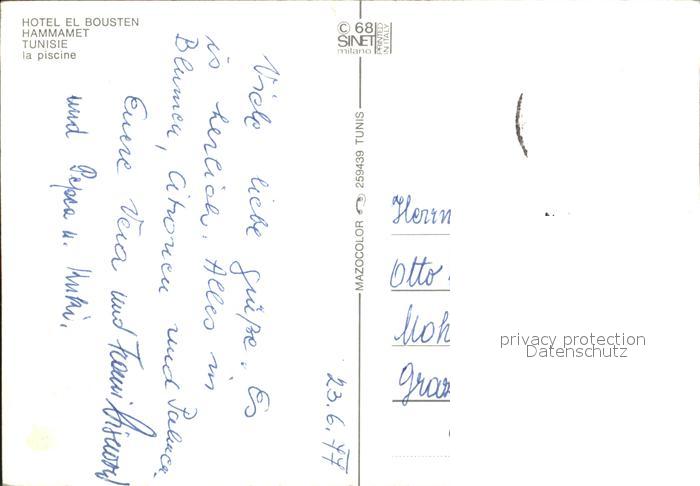 HOTEL EL BOUSTEN
HAMMAMET
TUNISIE
la piscine
© 68
SINET
milano
PRINTED
IN ITALY
MAZOCOLOR 259439 TUNIS
23.6.77
Viele liebe grüße. Es
is herlich. Alles in
Blumen, Citronen und Palmen
Euere Vera und
und Pepca u.
Herrn
Otto
Moh
Graz
privacy protection
Datenschutz